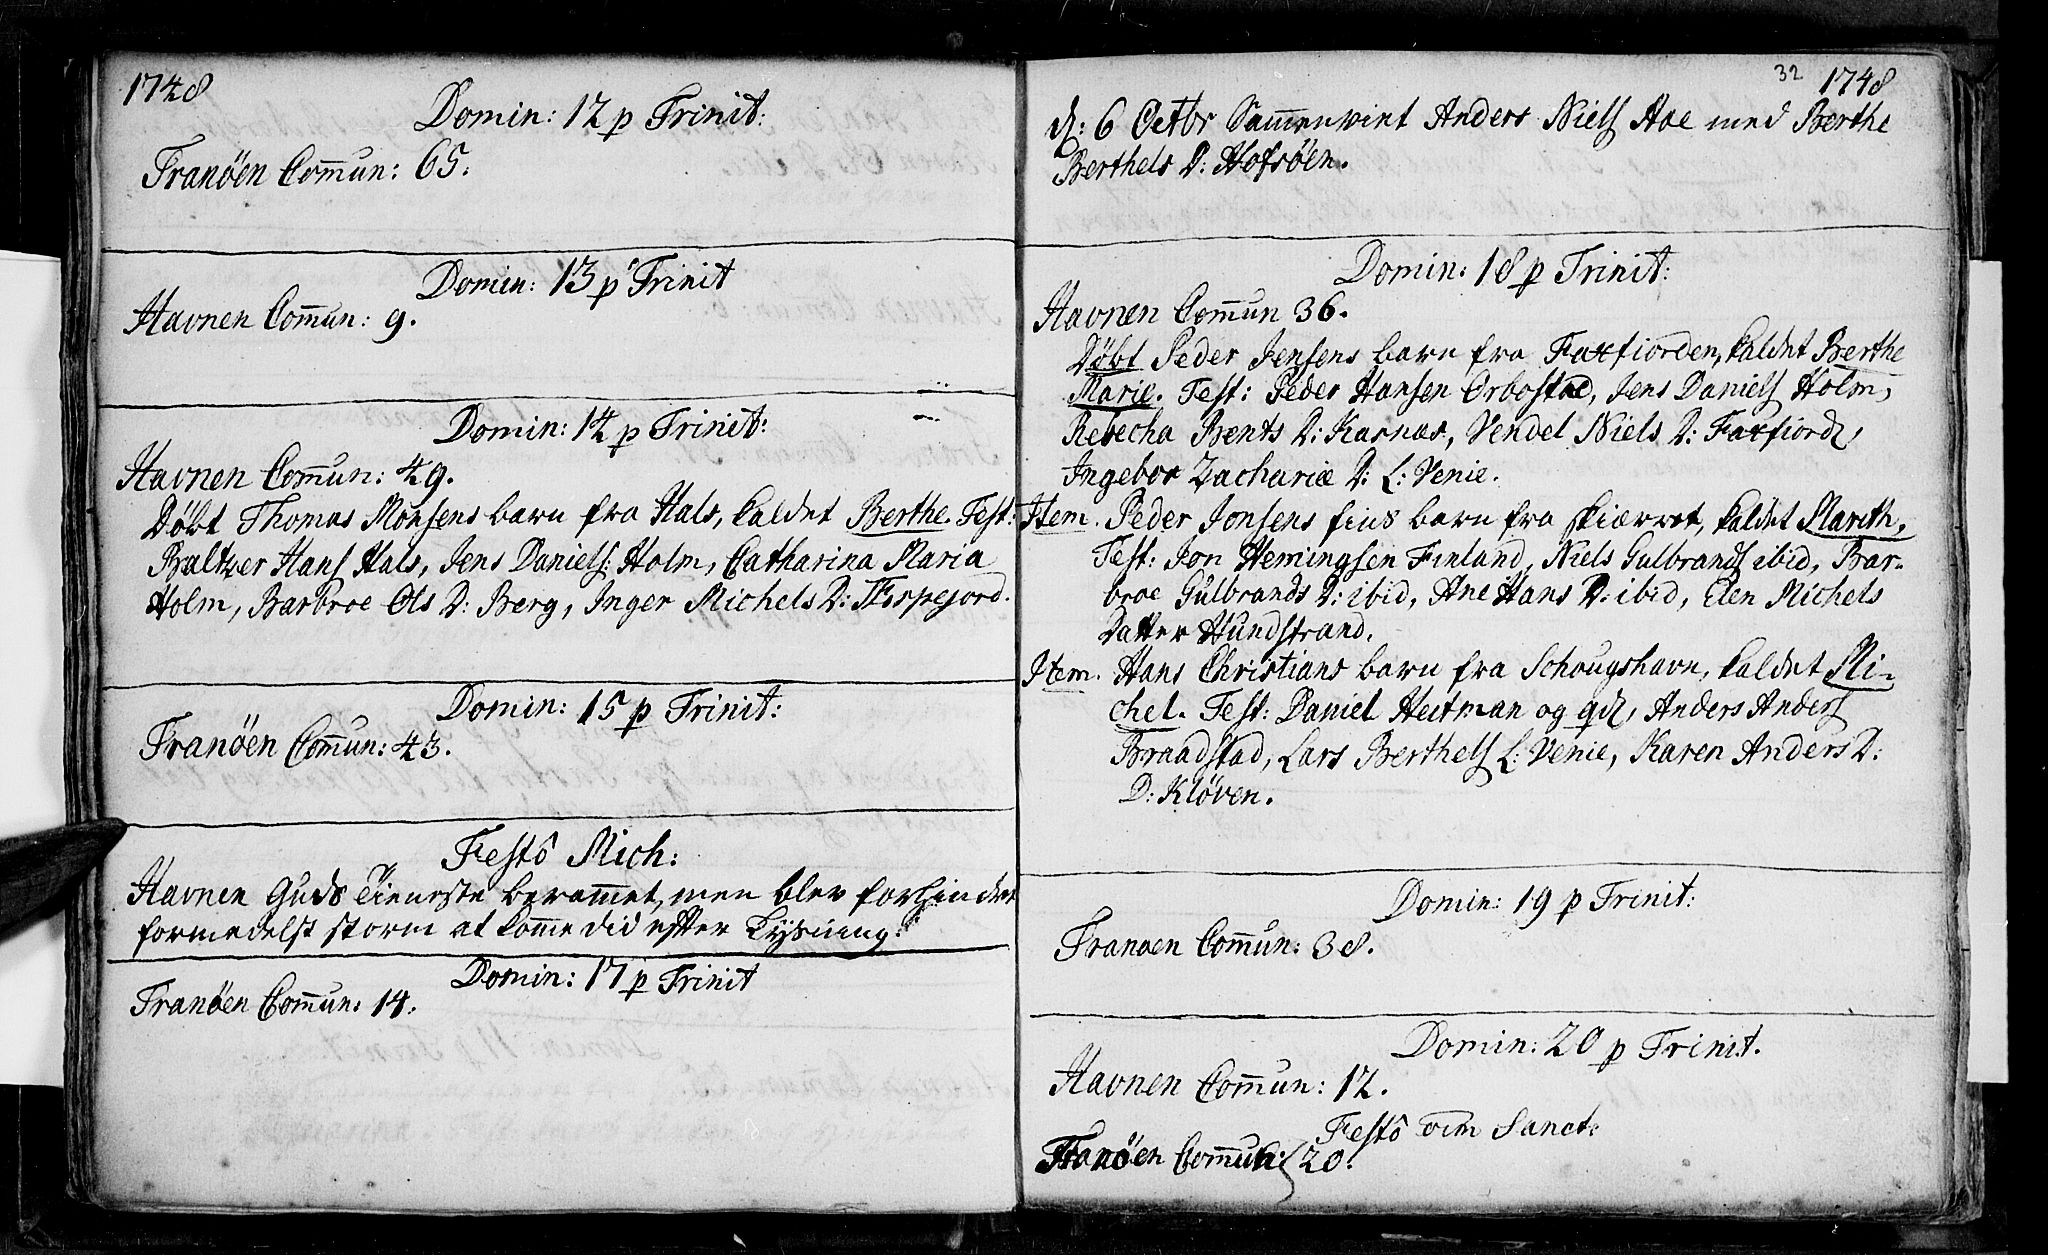 1748
Domin: 12 p Trinit:
Tranöen Com̄un: 65.
Domin: 13 p Trinit
Havnen Com̄un: 9.
Domin: 14 p Trinit:
Havnen Com̄un: 49.
Döbt Thomas Monsens barn fra Hals, kaldet Berthe. Test:
Baltzer Hans Hals, Jens Daniels: Holm, Catharina Maria
Holm, Barbroe Ols D: Berg, Inger Michels D: Torpejord.
Domin: 15 p Trinit:
Tranöen Com̄un: 43.
Festô Mich:
Havnen Guds Tieneste beram̄et, men blev forhindret
formedelst storm at kom̄e did efter Lysning:
Domin: 17 p Trinit
Tranöen Com̄un: 14.
32 1748
d: 6 Octbr Sam̄enviet Anders Niels Aae med Berthe
Berthels D: Hofsöen.
Domin: 18 p Trinit:
Havnen Com̄un 36.
Döbt Peder Jensens barn fra Faxfiorden, kaldet Berthe
Marie. Test: Peder Hansen Orbostad, Jens Daniels Holm,
Rebecha Bents D: Kasnæs, Vendel Niels D: Faxfiord,
Ingebor Zachariæ D: L: Venie.
Item. Peder Jonsens fins barn fra Skiærret, kaldet Marith,
Test: Jon Hemingsen Finland, Niels Gulbrands ibid, Bar-
broe Gulbrands D: ibid, Ane Hans D: ibid, Elen Michels
Datter Hundstrand.
Item. Hans Christians barn fra Schougshavn, kaldet Mi-
chel. Test: Daniel Heitman og qd, Anders Anders
Braadstad, Lars Berthels L: Venie, Karen Anders D:
D: Klöven.
Domin: 19 p Trinit:
Tranoen Com̄un: 38.
Domin: 20 p Trinit.
Havnen Com̄un: 12.
Festô om̄ Sanct:
Tranöen Com̄un: 20.